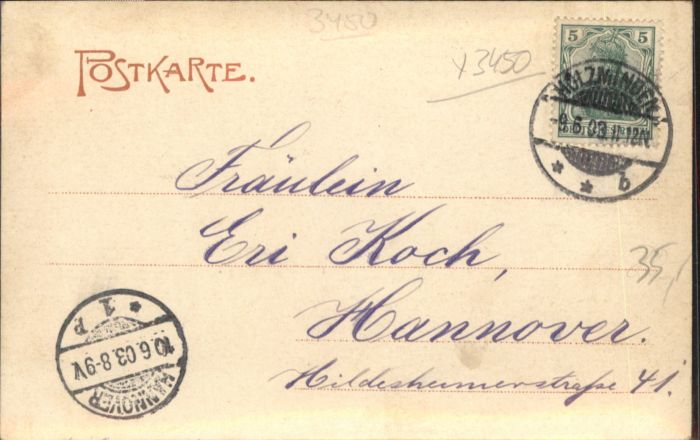 3450
POSTKARTE.
x3450
5 5
HOLZMINDEN
9.6.03.11-12N
* * b
Fräulein
Eri Koch,
Hannover.
Hildesheimerstraße 41.
35,
* 1 P
10.6.03.8-9V.
HANNOVER